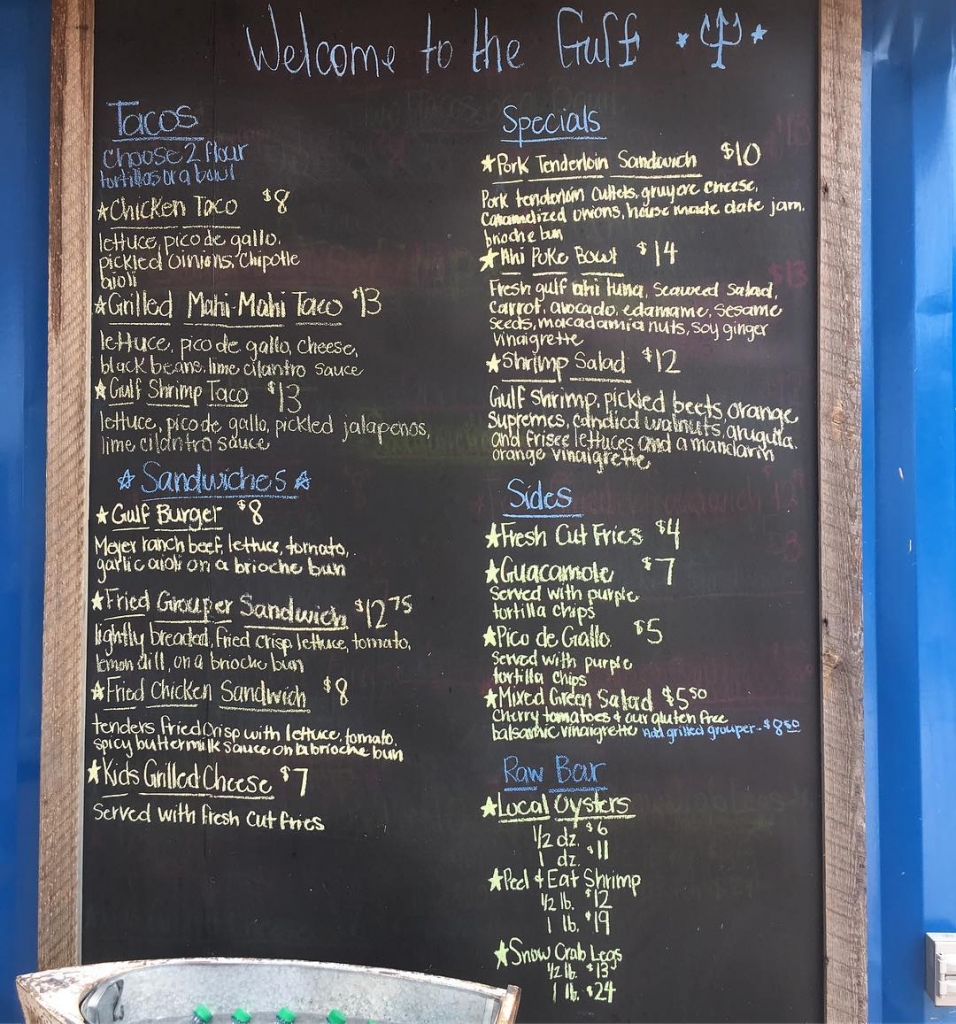 Welcome to the Gulf
Tacos
choose 2 flour
tortillas or a bowl
★Chicken Taco $8
lettuce, pico de gallo,
pickled onions, Chipotle
aioli
★Grilled Mahi-Mahi Taco $13
lettuce, pico de gallo, cheese,
black beans, lime cilantro sauce
★Gulf Shrimp Taco $13
lettuce, pico de gallo, pickled jalapenos,
lime cilantro sauce
☆ Sandwiches ☆
★Gulf Burger $8
Meyer ranch beef, lettuce, tomato,
garlic aioli on a brioche bun
★Fried Grouper Sandwich $12 75
lightly breaded, fried crisp lettuce, tomato,
lemon dill, on a brioche bun
★Fried Chicken Sandwich $8
tenders fried crisp with lettuce, tomato,
spicy buttermilk sauce on a brioche bun
★Kids Grilled Cheese $7
Served with fresh cut fries
Specials
★Pork Tenderloin Sandwich $10
Pork tenderloin cutlets, gruyere cheese,
Caramelized onions, house made date jam,
brioche bun
★Ahi Poke Bowl $14
Fresh gulf ahi tuna, seaweed salad,
carrot, avocado, edamame, sesame
seeds, macadamia nuts, soy ginger
vinaigrette
★Shrimp Salad $12
Gulf shrimp, pickled beets, orange
supremes, candied walnuts, arugula
and frisee lettuces and a mandarin
orange vinaigrette
Sides
★Fresh Cut Fries $4
★Guacamole $7
Served with purple
tortilla chips
★Pico de Gallo $5
Served with purple
tortilla chips
★Mixed Green Salad $5 50
Cherry tomatoes & our gluten free
balsamic vinaigrette Add grilled grouper - $8 50
Raw Bar
★Local Oysters
1/2 dz. $6
1 dz. $11
★Peel & Eat Shrimp
1/2 lb. $12
1 lb. $19
★Snow Crab Legs
1/2 lb. $13
1 lb. $24